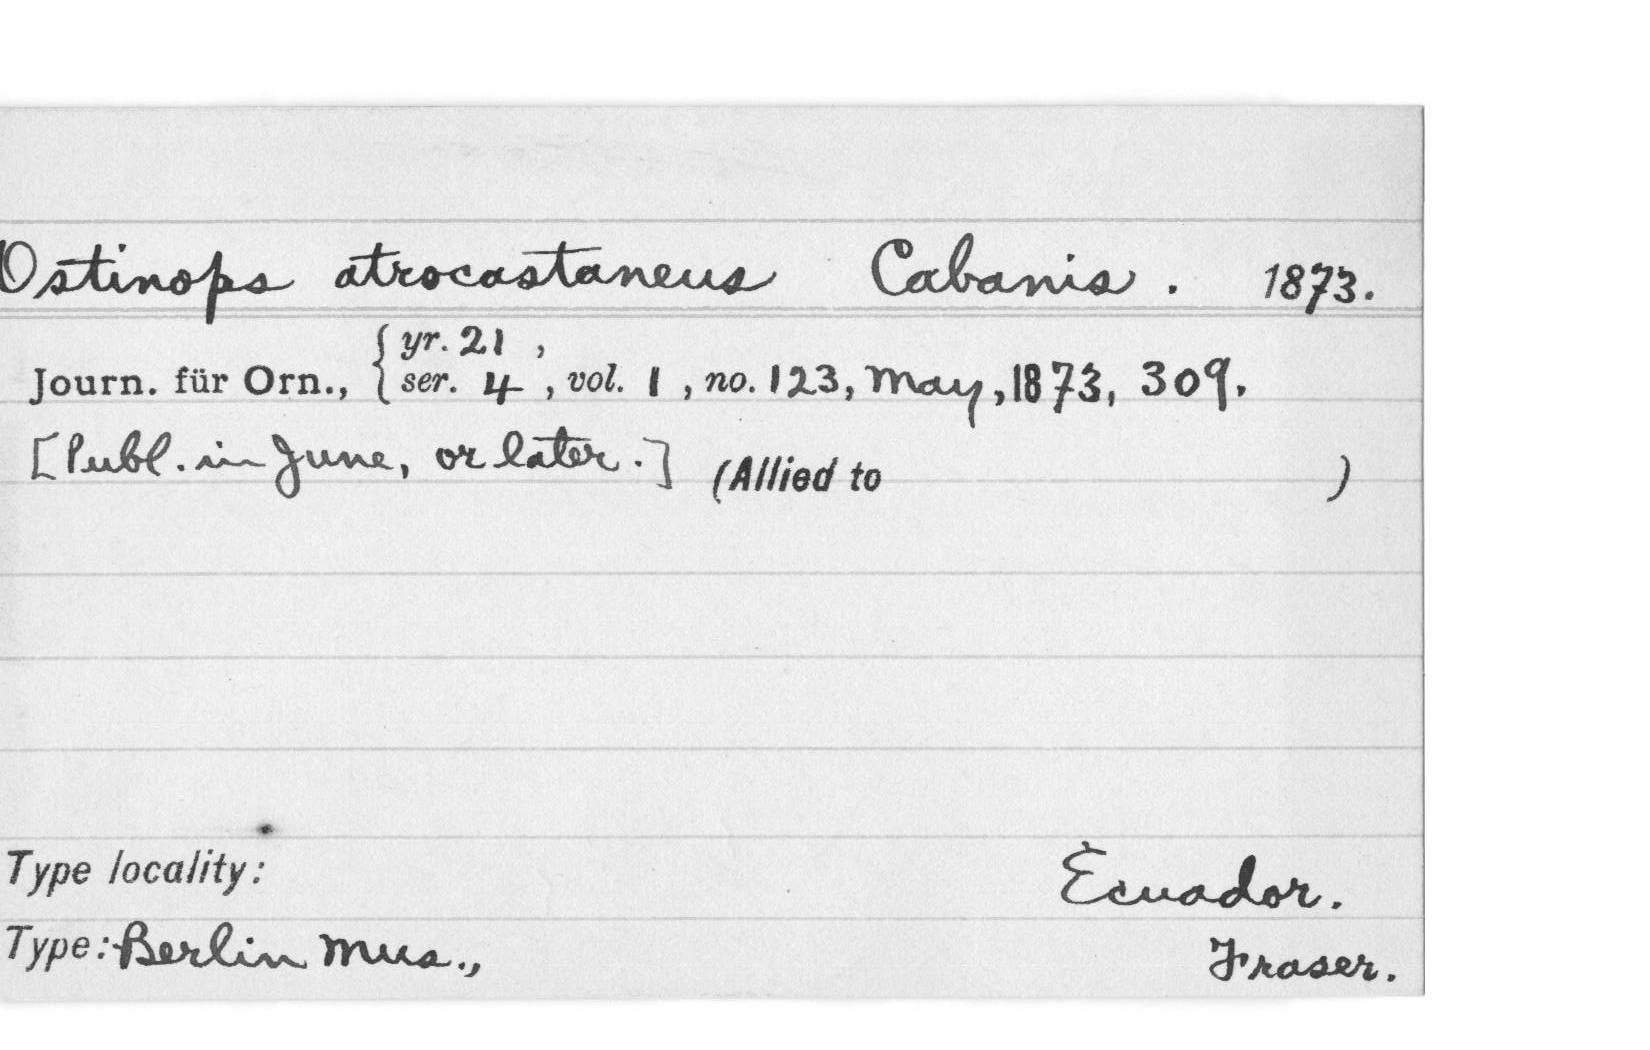 Ostinops atrocastaneus Cabanis. 1873.
Journ. für Orn., { yr. 21 ,
ser. 4 , vol. 1 , no. 123, May, 1873, 309.
[Publ. in June, or later.] (Allied to )
Type locality: Ecuador.
Type: Berlin Mus., Fraser.